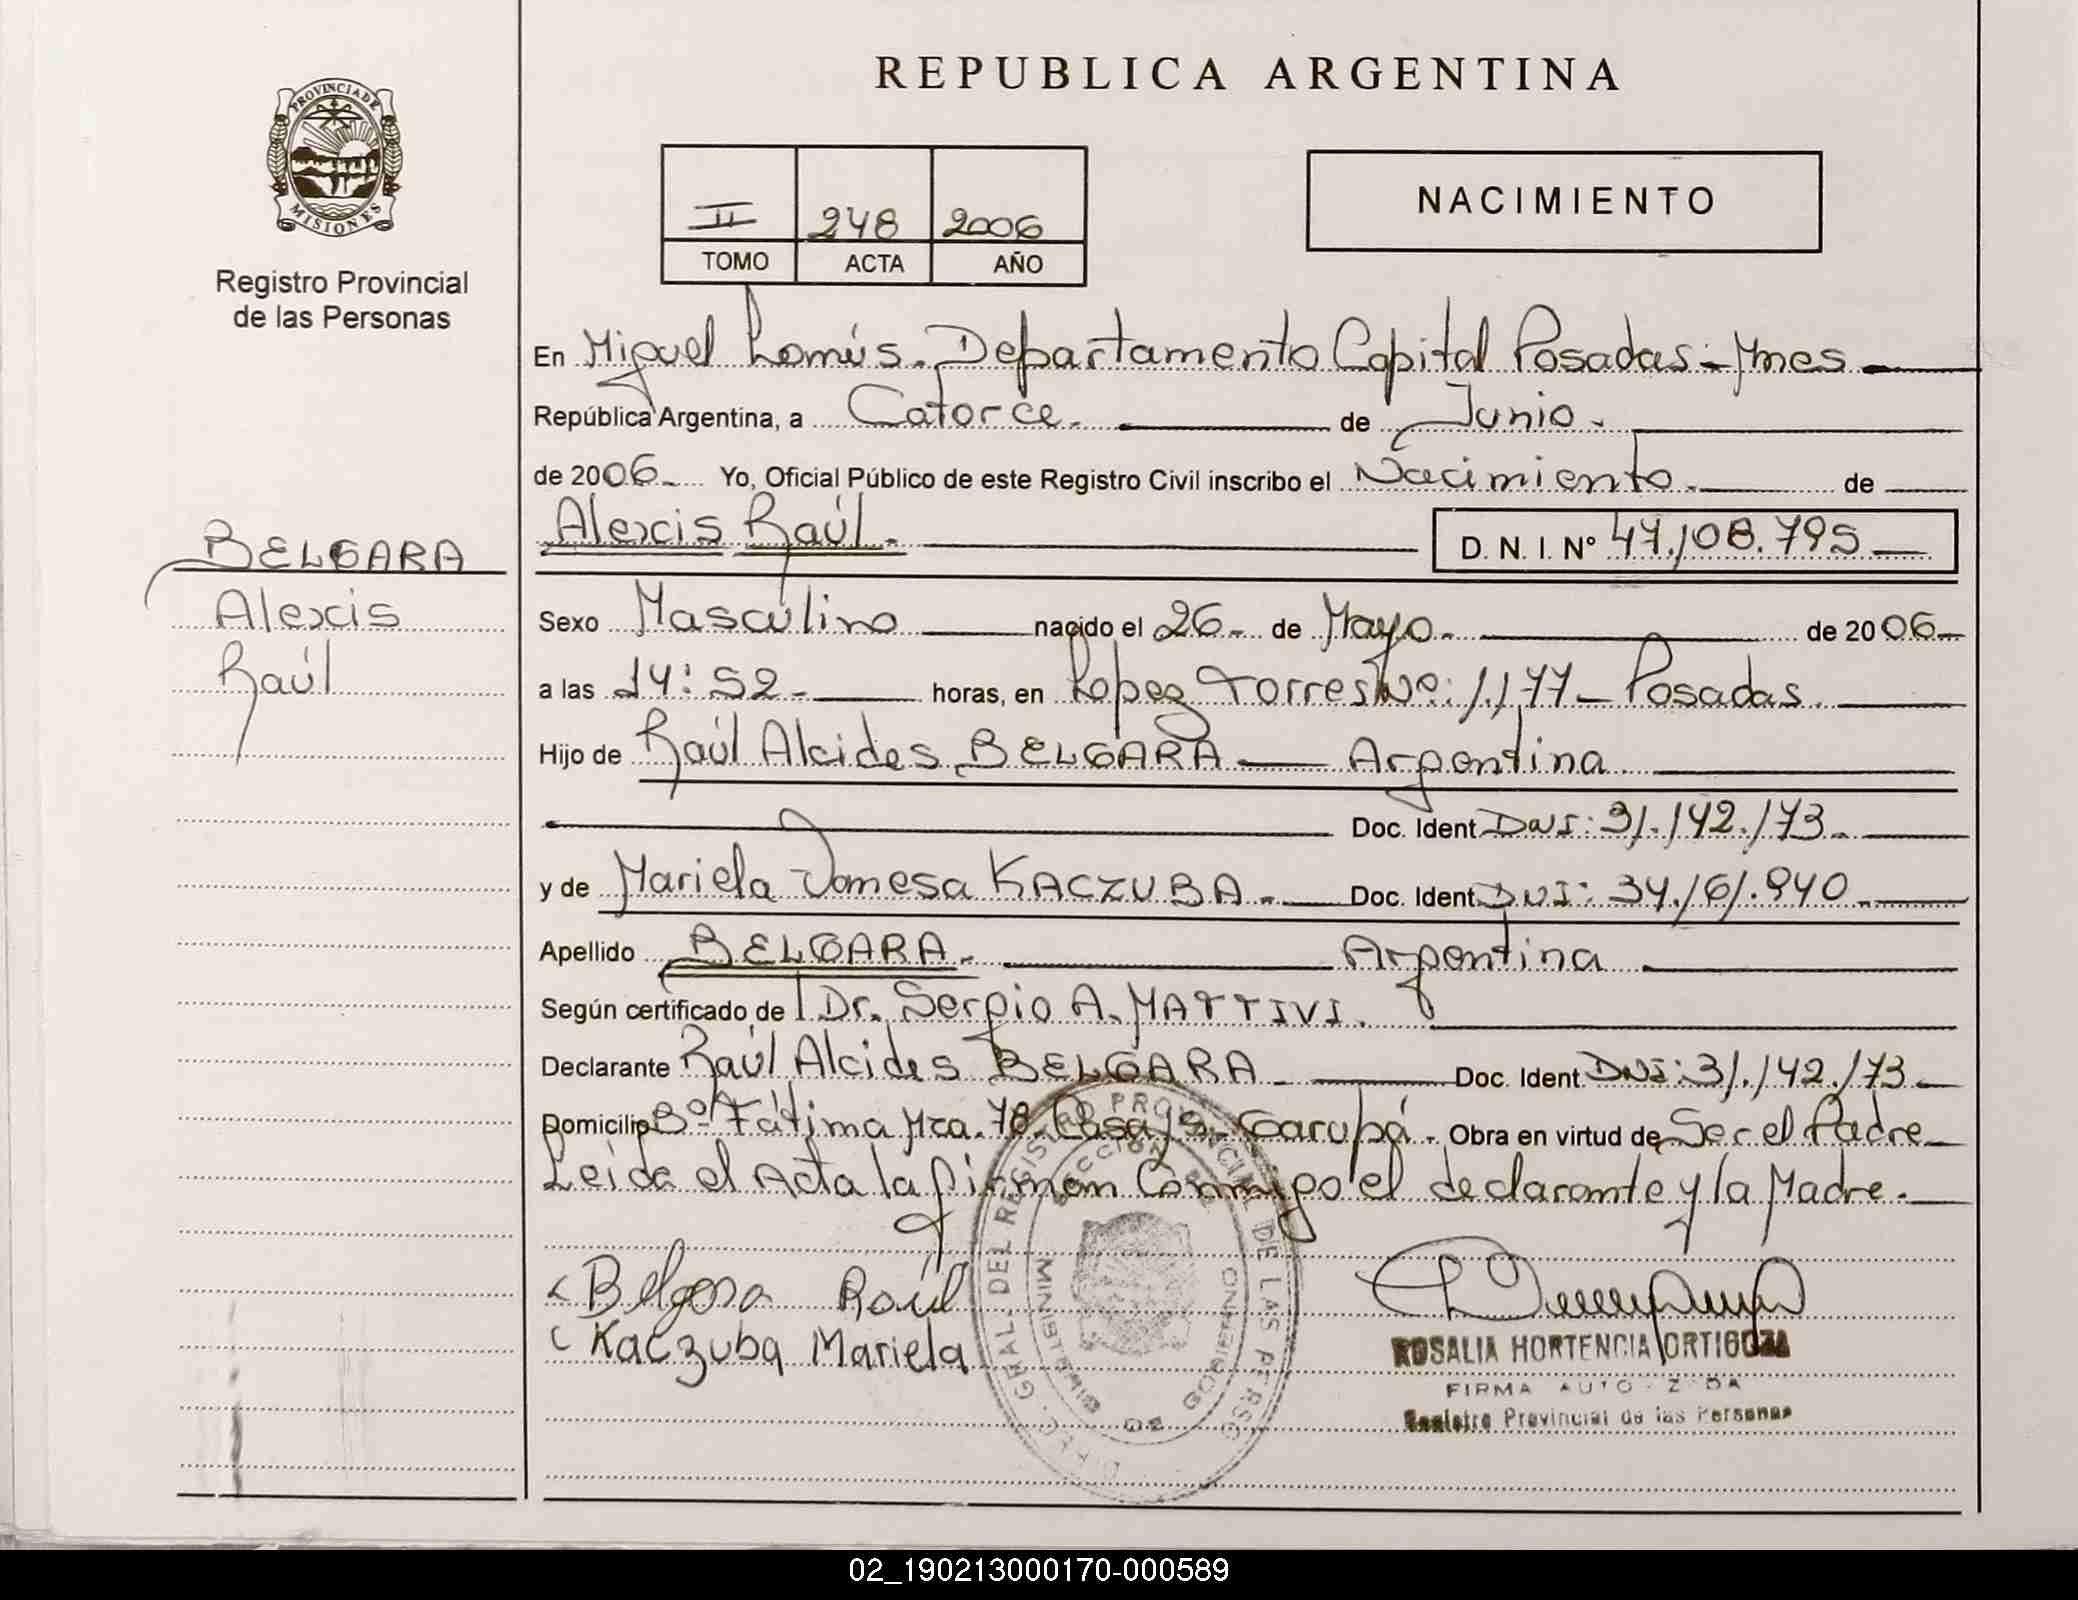 REPUBLICA ARGENTINA
PROVINCIA DE
MISIONES
Registro Provincial
de las Personas
II 248 2006
TOMO ACTA AÑO
NACIMIENTO
En Miguel Lanús. Departamento Capital Posadas - Mnes
República Argentina, a Catorce. de Junio.
de 2006 Yo, Oficial Público de este Registro Civil inscribo el Nacimiento. de
Alexis Raúl. D. N. I. Nº 47.108.795
BELGARA
Alexis
Raúl
Sexo Masculino nacido el 26 de Mayo. de 2006
a las 14:52 horas, en Lopez Torres Nº: 1.177 - Posadas.
Hijo de Raúl Alcides BELGARA Argentina
Doc. Ident DNI: 31.142.173
y de Mariela Vanesa KACZUBA. Doc. Ident DNI: 34.161.940
Apellido BELGARA. Argentina
Según certificado de Dr. Sergio A. MATTIVI.
Declarante Raúl Alcides BELGARA Doc. Ident DNI: 31.142.173
Domicilio Bº Fátima Mza. 78. Casa 19. Garupá. Obra en virtud de Ser el Padre
Leida el Acta la firman Conmigo el declarante y la Madre.
Belgara Raúl
Kaczuba Mariela
DIREC. GRAL. DEL REGISTRO PROVINCIAL DE LAS PERSONAS
MINISTERIO DE GOBIERNO
ROSALIA HORTENCIA ORTIGOZA
FIRMA AUTORIZADA
Registro Provincial de las Personas
02_190213000170-000589